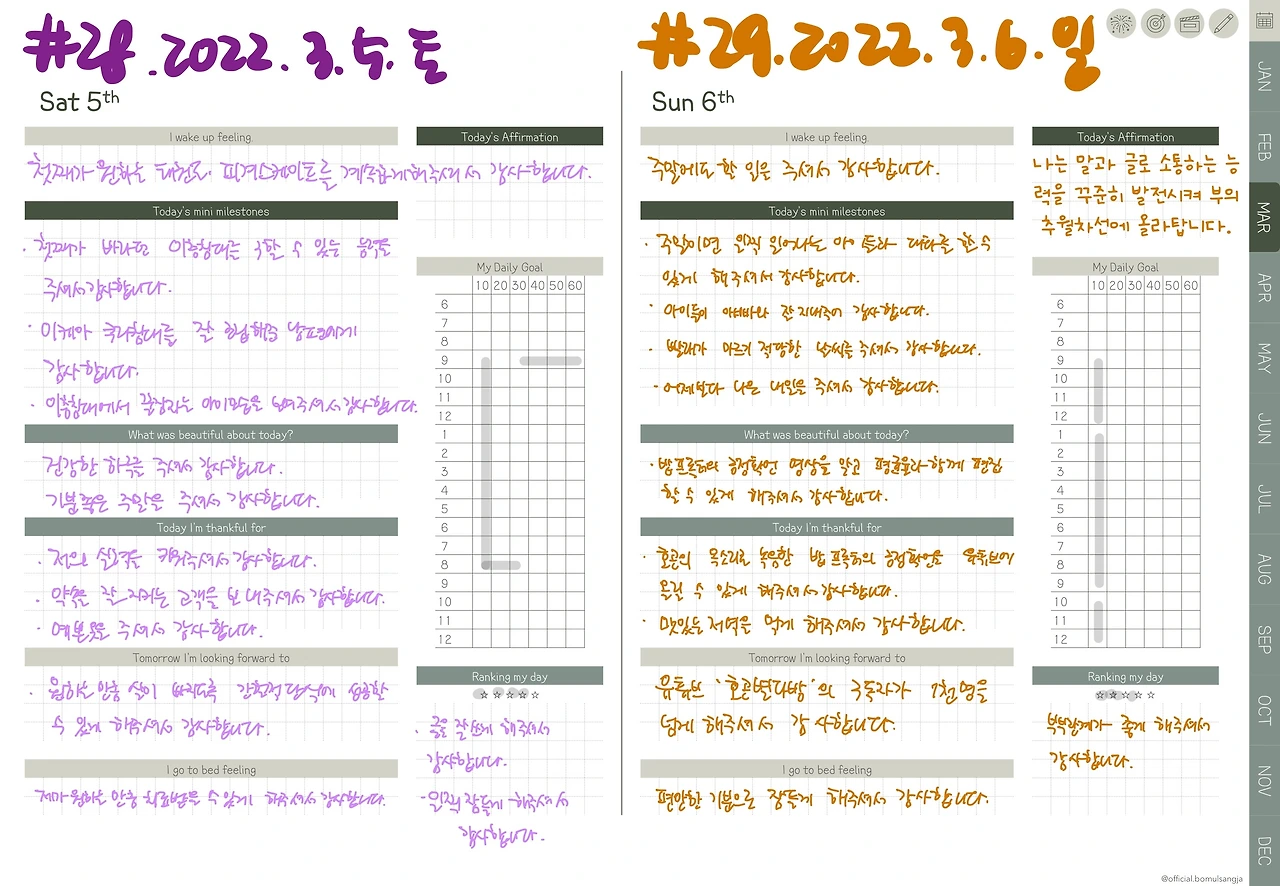 #28.2022.3.5.토
Sat 5th
I wake up feeling,
첫째가 원하는 태권도, 피겨스케이트를 계속하게해주셔서 감사합니다.
Today's Affirmation
Today's mini milestones
· 첫째가 바라던 이층침대를 구할 수 있는
주셔서 감사합니다.
· 이케아 침대를 잘 해준 남편에게
감사합니다.
· 이층침대에서 아이모습을 보여주셔서 감사합니다.
My Daily Goal
10 20 30 40 50 60
6
7
8
9
10
11
12
1
2
3
4
5
6
7
8
9
10
11
12
What was beautiful about today?
건강한 하루를 주셔서 감사합니다.
기분좋은 주말을 주셔서 감사합니다.
Today I'm thankful for
· 저의 실력을 키워주셔서 감사합니다.
· 약속을 잘 지키는 고객을 보내주셔서 감사합니다.
· 예쁜옷을 주셔서 감사합니다.
Tomorrow I'm looking forward to
· 원하는 인충
수 있게 해주셔서 감사합니다.
Ranking my day
· 글을 잘 쓰게 해주셔서
감사합니다.
· 일찍 잠들게 해주셔서
감사합니다.
I go to bed feeling
원하는 수 있게 해주셔서 감사합니다.
#29.2022.3.6.일
Sun 6th
I wake up feeling,
주말에도 할 일을 주셔서 감사합니다.
Today's Affirmation
나는 말과 글로 소통하는 능
력을 꾸준히 발전시켜 부의
추월차선에 올라탑니다.
Today's mini milestones
· 주말이면 일찍 일어나는 아이들과 대화를 할 수
있게 해주셔서 감사합니다.
· 아이들이 아빠와 잘 지내주어 감사합니다.
· 빨래가 마르기 적당한 날씨를 주셔서 감사합니다.
· 어제보다 나은 내일을 주셔서 감사합니다.
My Daily Goal
10 20 30 40 50 60
6
7
8
9
10
11
12
1
2
3
4
5
6
7
8
9
10
11
12
What was beautiful about today?
· 밥프록터의 긍정확언 영상을 알고 함께 편집
할 수 있게 해주셔서 감사합니다.
Today I'm thankful for
· 호곤의 목소리로 녹음한 밥프록터의 긍정확언을 유튜브에
올릴 수 있게 해주셔서 감사합니다.
· 맛있는 저녁을 먹게 해주셔서 감사합니다.
Tomorrow I'm looking forward to
유튜브 '호곤별다방'의 구독자가 1천명을
넘게 해주셔서 감사합니다.
Ranking my day
부부관계가 좋게 해주셔서
감사합니다.
I go to bed feeling
편안한 기분으로 잠들게 해주셔서 감사합니다.
JAN
FEB
MAR
APR
MAY
JUN
JUL
AUG
SEP
OCT
NOV
DEC
@official.bomulsangja